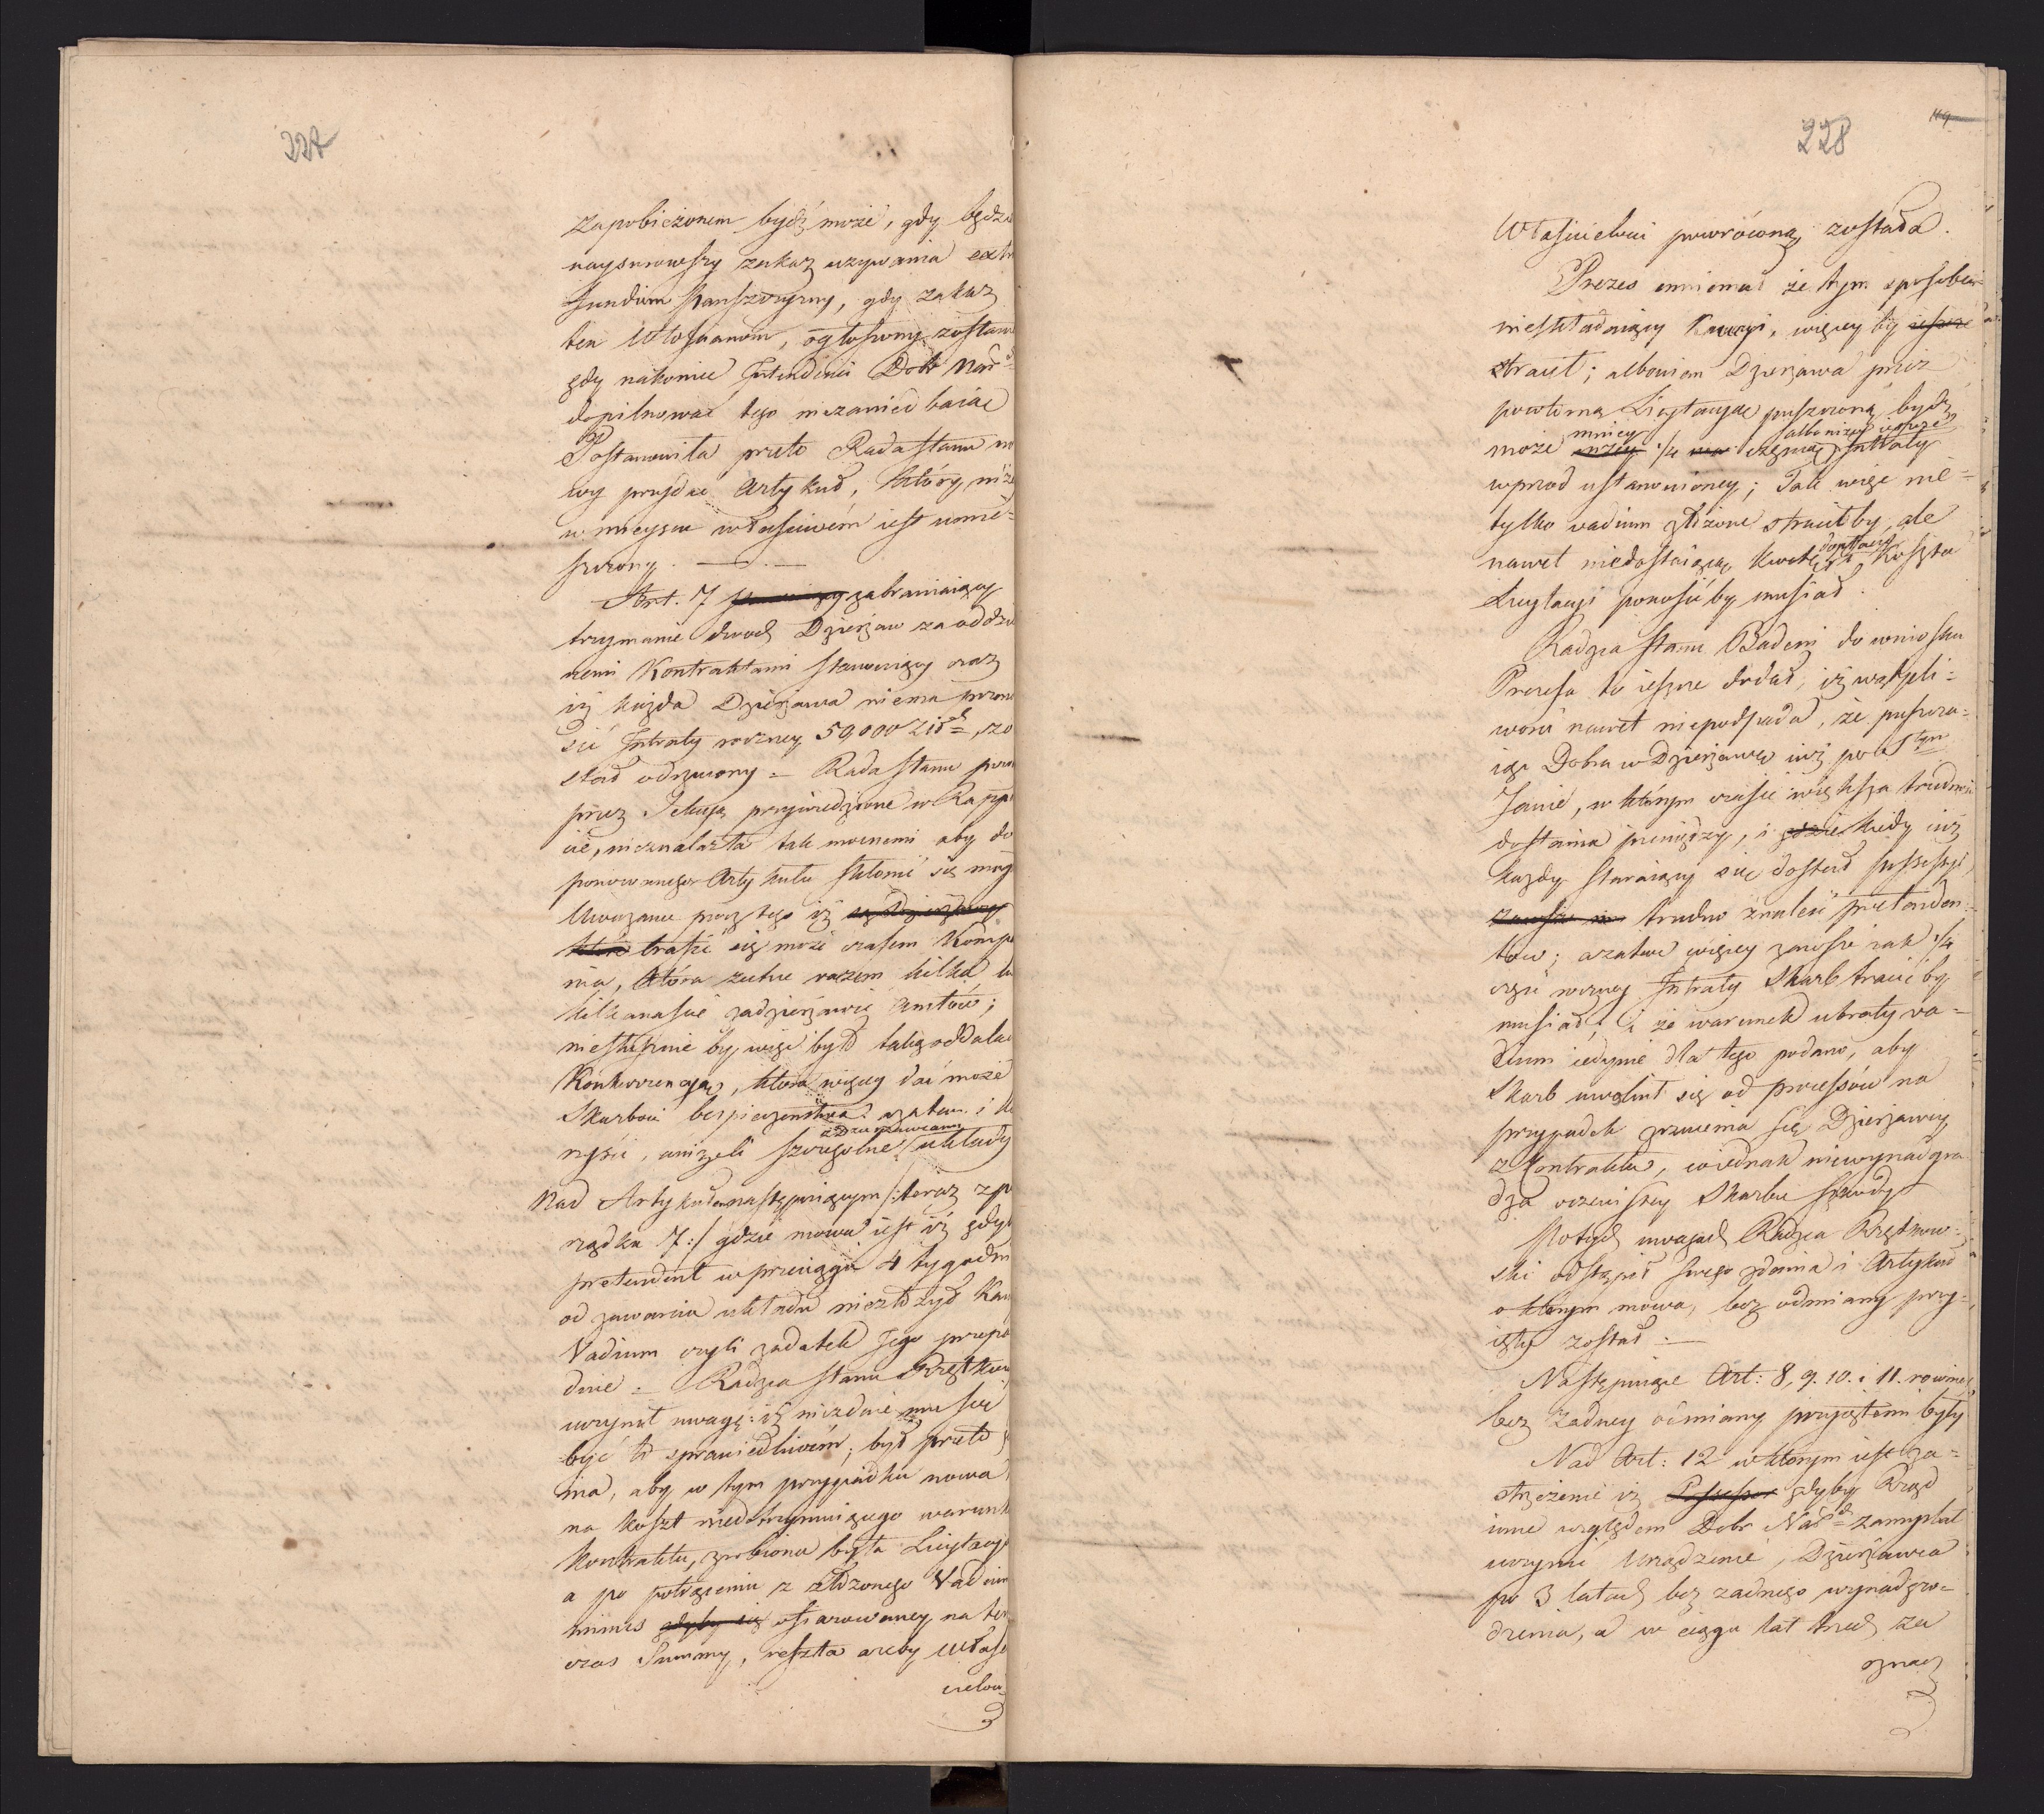 227
zapobieżonem bydź może, gdy będzie
naysurowszy zakaz używania extra
fundum
ten Włoscianom, ogłoszony zostanie
gdy nakoniec Intendenci Dobr Nar
dopilnować tego niezaniedbaiąc
Postanowiła przeto Rada Stanu no
wy przydać Artykuł, który niże
w mieyscu właściwém iest umie=
szczony. —.—
Art. 7 zabraniaiący
trzymanie dwoch Dzierżaw za oddziel
nemi Kontraktami stanowiący oraz
iż każda Dzierżawa niema przeno
sić Intraty roczney 50,000 Złoch, zo
stał odrzucony = Rada Stanu powo
przez Sekcyą przywiedzione w Rappo
cie, nieznalazła tak mocnemi aby do
ponowanego Artykułu skłonić się mog
Uważano przez tego iż
trafić się może czasem Kompa
nia, która zechce razem kilka lu
kilkanaście zadzierżawić Amtów;
niesłusznie by więc było taką oddalać
Konkurrencyą, która więcey dać może
Skarbowi bespieczeństwa zatem i ko
rzyści, aniżeli szczegolne układy
Nad Artykułem następuiącym /:teraz z po
rządku 7:/ gdzie mowa iest iż gdyb
pretendent w przeciągu 4 tygodni
od zawarcia układu niezłożył Kau
Vadium czyli zadatek Jego przepa
dnie = Radzca Stanu
uczynił uwagę: iż niezdaie mu się
być to sprawiedliwém; był przeto z
nia, aby w tym przypadku nowa
na koszt niedotrzymuiącego warunk
kontraktu, zrobiona była Licytacya
a po potrąceniu z złożonego Vadium
minus gdyby się ofiarowaney na ten
czas Summy, reszta aceby Właśc
cielow=
228
Właścicielowi powróconą została.
Prezes mniemał że tym sposobem
nieskładaiący Kaucyi, więcey by ieszcze
stracił; albowiem Dzierżawa przez
powtórną Licytacyę puszczoną bydź
może mniey ¼ częścią Intraty
albo niżey
wprzod ustanowioney; Tak więc nie=
tylko vadium złożone straciłby, ale
nawet niedostaiącą kwotę i Koszta
dopłacać
Licytacyi ponosić by musiał.
Radzca Stanu Badeni do wniosku
Prezesa to ieszcze dodał, iż wątpli=
wości nawet niepodpada, że puszcza=
iąc Dobra w Dzierżawę iuż po Stym
Janie, w którym czasie większa trudność
dostania pieniędzy, i gdzie kiedy iuż
każdy staraiący się dostał possessyi,
trudno znaleść pretenden=
tow; a zatem więcey zawsze iak ¼
część roczney Intraty Skarb tracić by
musiał; i że warunek utraty va=
dium iedynie dla tego podano, aby
Skarb uwolnił się od processów na
przypadek zrzucenia się Dzierżawcy
z Kontraktu, co iednak niewynadgra
dza oczewistey Skarbu szkody.
Po tych uwagach Radzca
ski odstąpił swego zdania i Artykuł
o którym mowa, bez odmiany przy=
ięty został.—
Następuiące Art: 8, 9. 10. i 11. rownież
bez żadney odmiany przyiętemi były
Nad Art: 12 w którym iest za=
strzeżenie iż Possessor gdyby Rząd
inne względem Dobr Narch zamyslał
uczynić Urządzenie, Dzierżawca
po 3 latach bez żadnego wynadgro=
dzenia, a w ciągu lat trzech za
oznacz